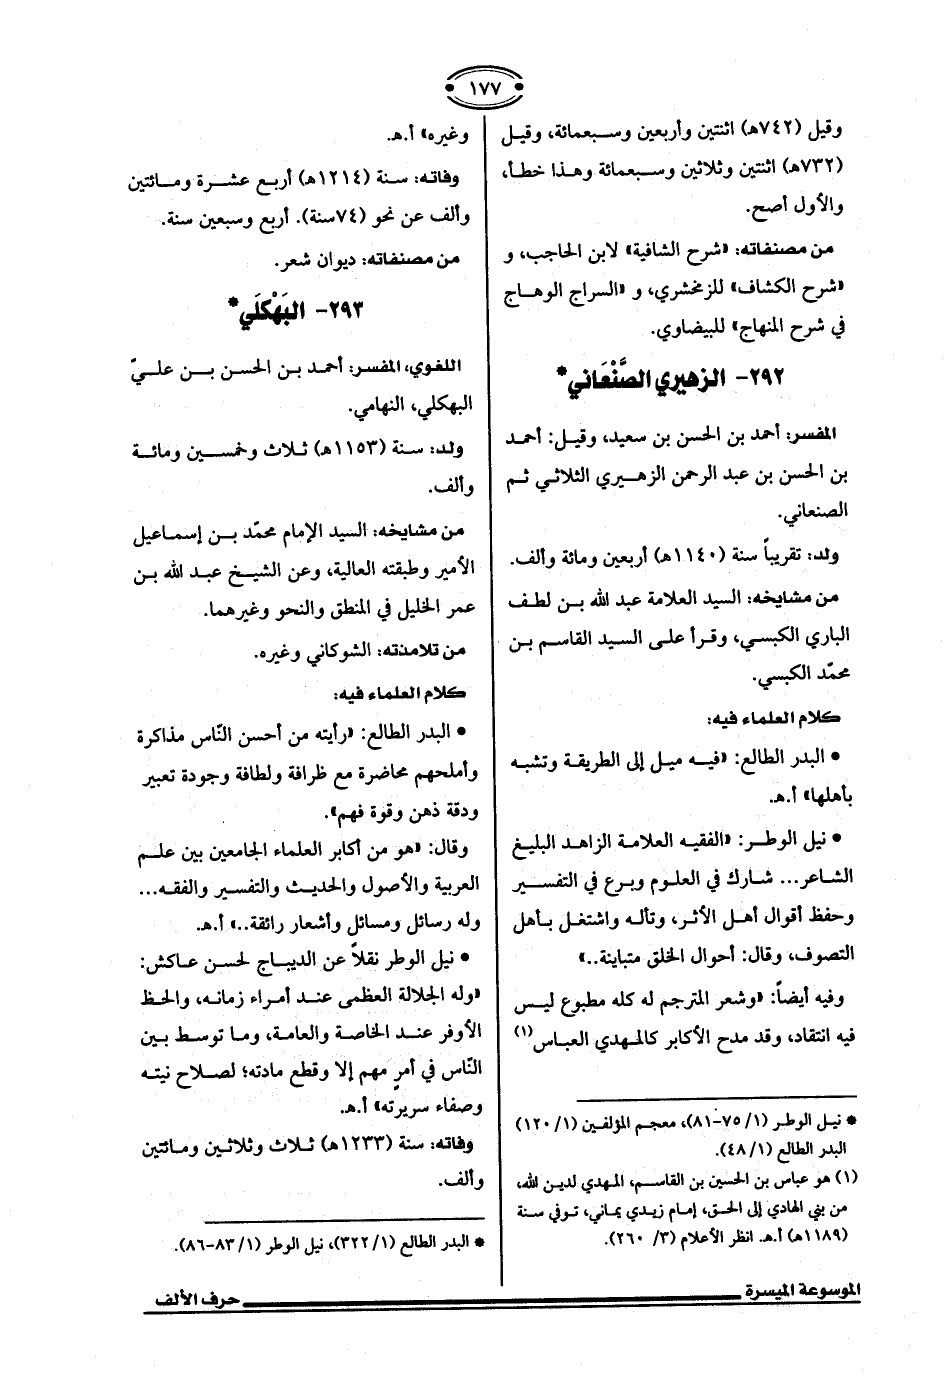 ١٧٧
وقيل (٧٤٢هـ) اثنتين وأربعين وسبعمائة، وقيل
(٧٣٢هـ) اثنتين وثلاثين وسبعمائة وهذا خطأ،
والأول أصح.
من مصنفاته: «شرح الشافية» لابن الحاجب، و
«شرح الكشاف» للزمخشري، و «السراج الوهاج
في شرح المنهاج» للبيضاوي.
٢٩٢- الزهيري الصَّنْعَاني*
المفسر: أحمد بن الحسن بن سعيد، وقيل: أحمد
بن الحسن بن عبد الرحمن الزهيري الثلاثي ثم
الصنعاني.
ولد: تقريباً سنة (١١٤٠هـ) أربعين ومائة وألف.
من مشايخه: السيد العلامة عبد الله بن لطف
الباري الكبسي، وقرأ على السيد القاسم بن
محمّد الكبسي.
كلام العلماء فيه:
• البدر الطالع: «فيه ميل إلى الطريقة وتشبه
بأهلها» أ.هـ.
• نيل الوطر: «الفقيه العلامة الزاهد البليغ
الشاعر... شارك في العلوم وبرع في التفسير
وحفظ أقوال أهل الأثر، وتأله واشتغل بأهل
التصوف، وقال: أحوال الخلق متباينة..»
وفيه أيضاً: «وشعر المترجم له كله مطبوع ليس
فيه انتقاد، وقد مدح الأكابر كالمهدي العباس(١)
* نيل الوطر (١/ ٧٥-٨١)، معجم المؤلفين (١/ ١٢٠)
البدر الطالع (١/ ٤٨).
(١) هو عباس بن الحسين بن القاسم، المهدي لدين الله،
من بني الهادي إلى الحق، إمام زيدي يماني، توفي سنة
(١١٨٩هـ) أ.هـ. انظر الأعلام (٣/ ٢٦٠).
وغيره» أ.هـ.
وفاته: سنة (١٢١٤هـ) أربع عشرة ومائتين
وألف عن نحو (٧٤سنة). أربع وسبعين سنة.
من مصنفاته: ديوان شعر.
٢٩٣- البَهْكَلي*
اللغوي، المفسر: أحمد بن الحسن بن عليّ
البهكلي، التهامي.
ولد: سنة (١١٥٣هـ) ثلاث وخمسين ومائة
وألف.
من مشايخه: السيد الإمام محمّد بن إسماعيل
الأمير وطبقته العالية، وعن الشيخ عبد الله بن
عمر الخليل في المنطق والنحو وغيرهما.
من تلامذته: الشوكاني وغيره.
كلام العلماء فيه:
• البدر الطالع: «رأيته من أحسن النّاس مذاكرة
وأملحهم محاضرة مع ظرافة ولطافة وجودة تعبير
ودقة ذهن وقوة فهم».
وقال: «هو من أكابر العلماء الجامعين بين علم
العربية والأصول والحديث والتفسير والفقه...
وله رسائل ومسائل وأشعار رائقة..» أ.هـ.
• نيل الوطر نقلاً عن الديباج لحسن عاكش:
«وله الجلالة العظمى عند أمراء زمانه، والحظ
الأوفر عند الخاصة والعامة، وما توسط بين
النّاس في أمرٍ مهم إلا وقطع مادته؛ لصلاح نيته
وصفاء سريرته» أ.هـ.
وفاته: سنة (١٢٣٣هـ) ثلاث وثلاثين ومائتين
وألف.
* البدر الطالع (١/ ٣٢٢)، نيل الوطر (١/ ٨٣-٨٦).
الموسوعة الميسرة
حرف الألف